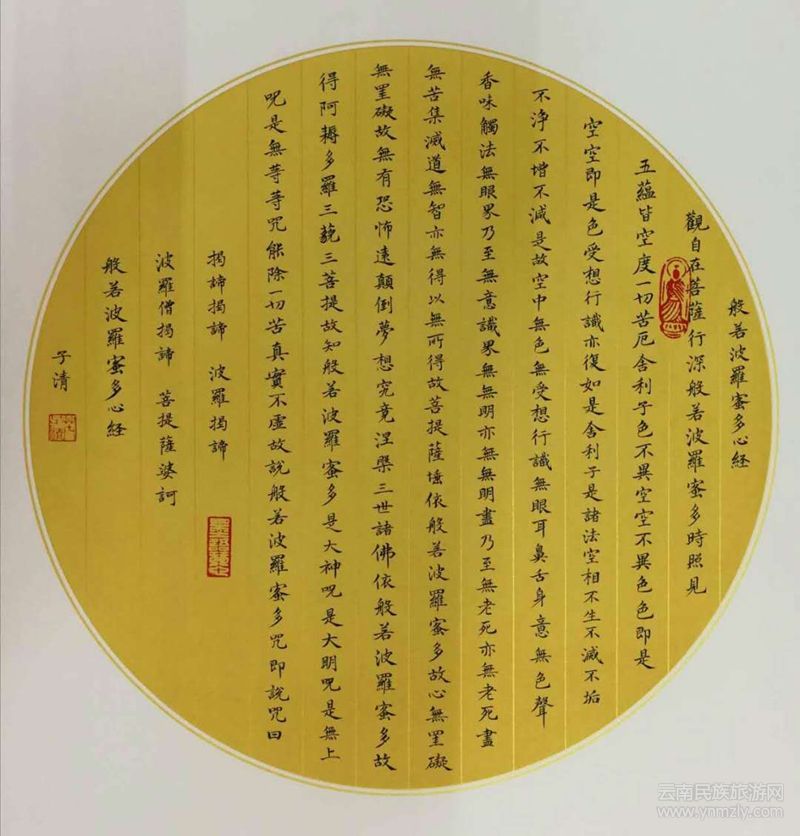 般若波羅蜜多心経
觀自在菩薩行深般若波羅蜜多時照見
五蘊皆空度一切苦厄舍利子色不異空空不異色色即是
空空即是色受想行識亦復如是舍利子是諸法空相不生不滅不垢
不淨不增不減是故空中無色無受想行識無眼耳鼻舌身意無色聲
香味觸法無眼界乃至無意識界無無明亦無無明盡乃至無老死亦無老死盡
無苦集滅道無智亦無得以無所得故菩提薩埵依般若波羅蜜多故心無罣礙
無罣礙故無有恐怖遠顛倒夢想究竟涅槃三世諸佛依般若波羅蜜多故
得阿耨多羅三藐三菩提故知般若波羅蜜多是大神呪是大明呪是無上
呪是無等等咒能除一切苦真實不虛故說般若波羅蜜多咒即說咒曰
揭諦揭諦 波羅揭諦
波羅僧揭諦 菩提薩婆訶
般若波羅蜜多心経
子清
云南民族旅游网
www.ynmzly.com